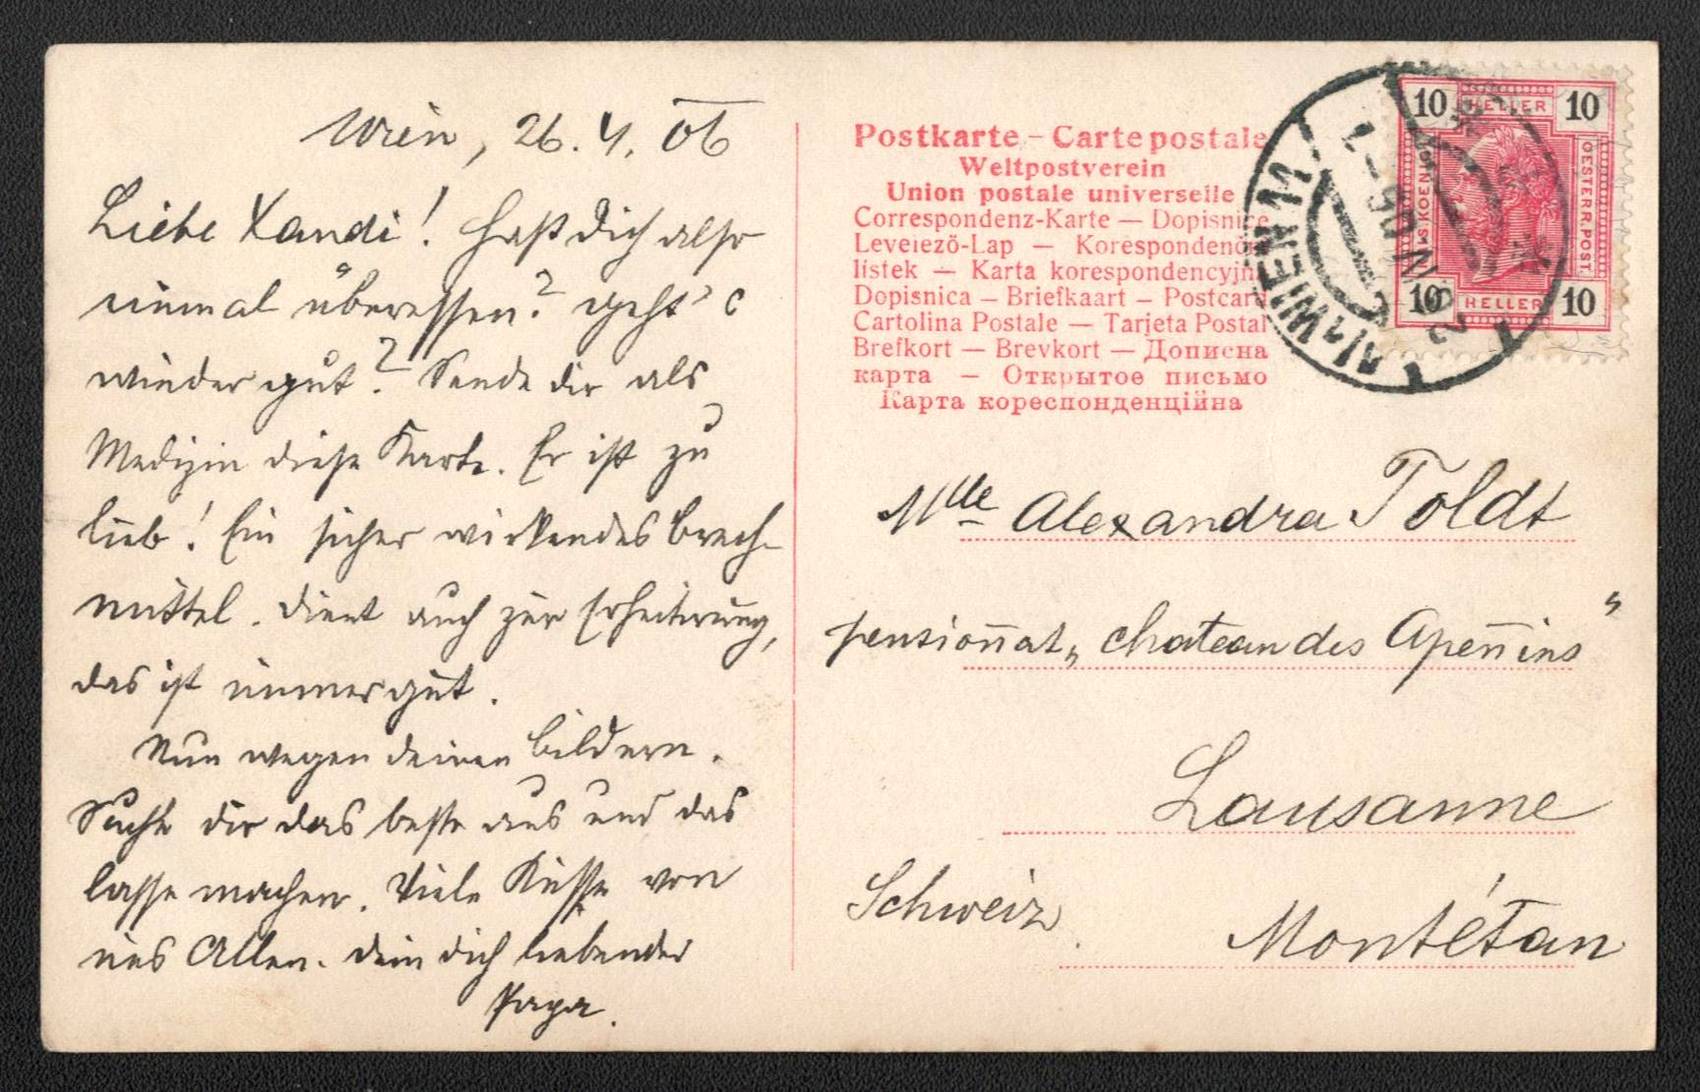 Wien, 26. 4. 06
Liebe Xandi! Hast dich also
einmal überessen? geht's
wieder gut? Sende dir als
Medizin diese Karte. Er ist zu
lieb! Ein sicher wirkendes Brech-
mittel. Dient auch zur Erheiterung,
das ist immer gut.
Nun wegen deinen Bildern.
Suche dir das beste aus und das
lasse machen. Viele Küsse von
uns Allen. Dein dich liebender
Papa.
Postkarte – Carte postale
Weltpostverein
Union postale universelle
Correspondenz-Karte — Dopisnice
Levelező-Lap — Korespondenční
lístek — Karta korespondencyjna
Dopisnica — Briefkaart — Postcard
Cartolina Postale — Tarjeta Postal
Brefkort — Brevkort — Дописна
карта — Открытое письмо
Карта кореспонденційна
10 HELLER 10
OESTERR. POST.
10 HELLER 10
1/1 WIEN 1/1
Mlle Alexandra Toldt
pensioñat „chateau des Apeñins“
Lausanne
Schweiz.
Montétan